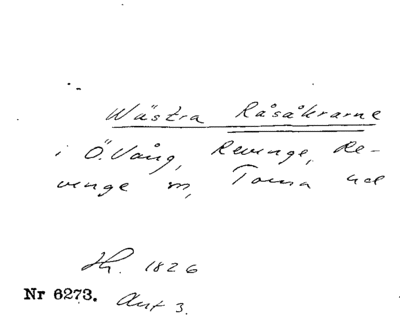 Wästra Råsåkrarne
i Ö. Vång, Revinge, Re-
vinge sn, Torna hd
Hh. 1826
Nr 6273. Akt 3.